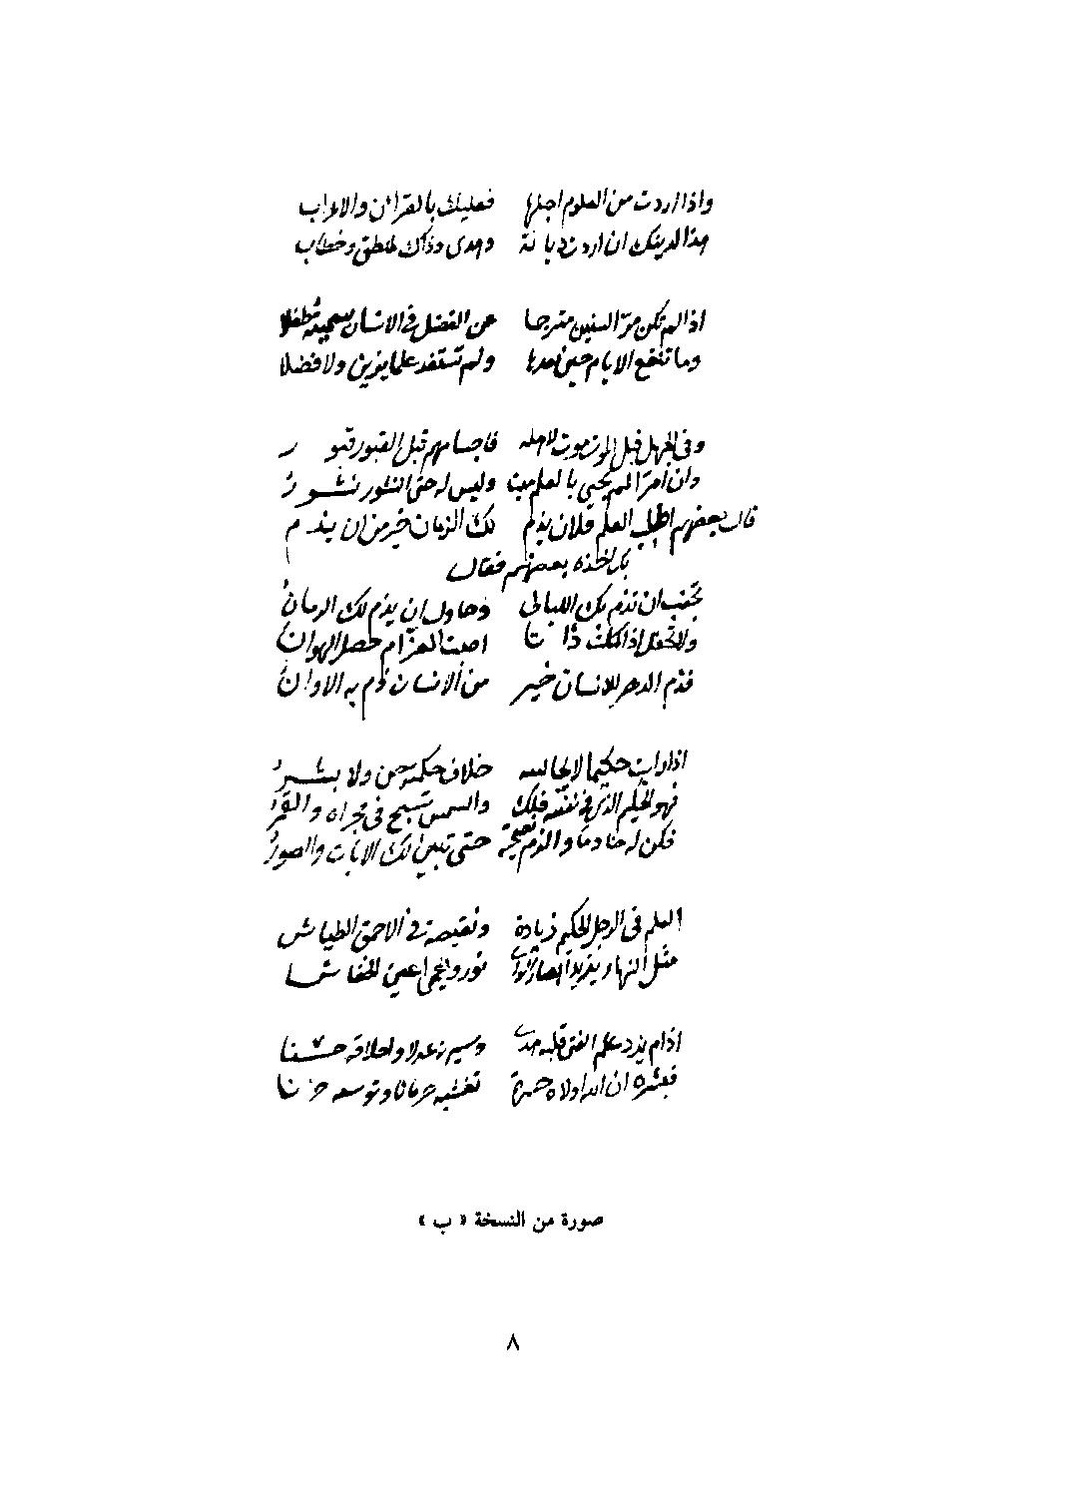 واذا اردت من العلوم اجلها فعليك بالقران والاعراب
هذا لدينك ان اردت ديانة وهدى وذاك لمنطق وخطاب
اذا لم تكن مر السنين مترجما عن الفضل في الانسان سميته طفلا
وما تنفع الايام حين تعدها ولم تستفد علما يزين ولا فضلا
وفي الجهل قبل الموت موت لاهله فاجسامهم قبل القبور قبور
وان امرا لم يحيى بالعلم ميت وليس له حتى النشور نشور
قال بعضهم اطلب العلم فلان يذم لك الزمان خير من ان يذم
بك اخذه بعضهم فقال
تجنب ان تذم بك الليالى وحاول ان يذم لك الزمان
ولا تحفل اذا كملت ذاتا اصبت العز ام حصل الهوان
فذم الدهر للانسان خير من الانسان ذم به الاوان
اذا رايت حكيما لا يجالسه خلاف حكمته جن ولا بشر
فهو الحكيم الذي في نفسه فلك والشمس تسبح في مجراه والقمر
فكن له خادما والزم حتى تبين لك الايات والصور
العلم فى الرجل الحكيم زيادة ونقيصة في الاحمق الطياش
مثل النهار يزيد ابصار الورى نورا ويعمى اعين الخفاش
اذا لم يزد علم الفتى قلبه هدى وسيرته عدلا واخلاقه حسنا
فبشره ان الله اولاه تغشيه حرمانا وتوسعه حزنا
صورة من النسخة « ب »
٨